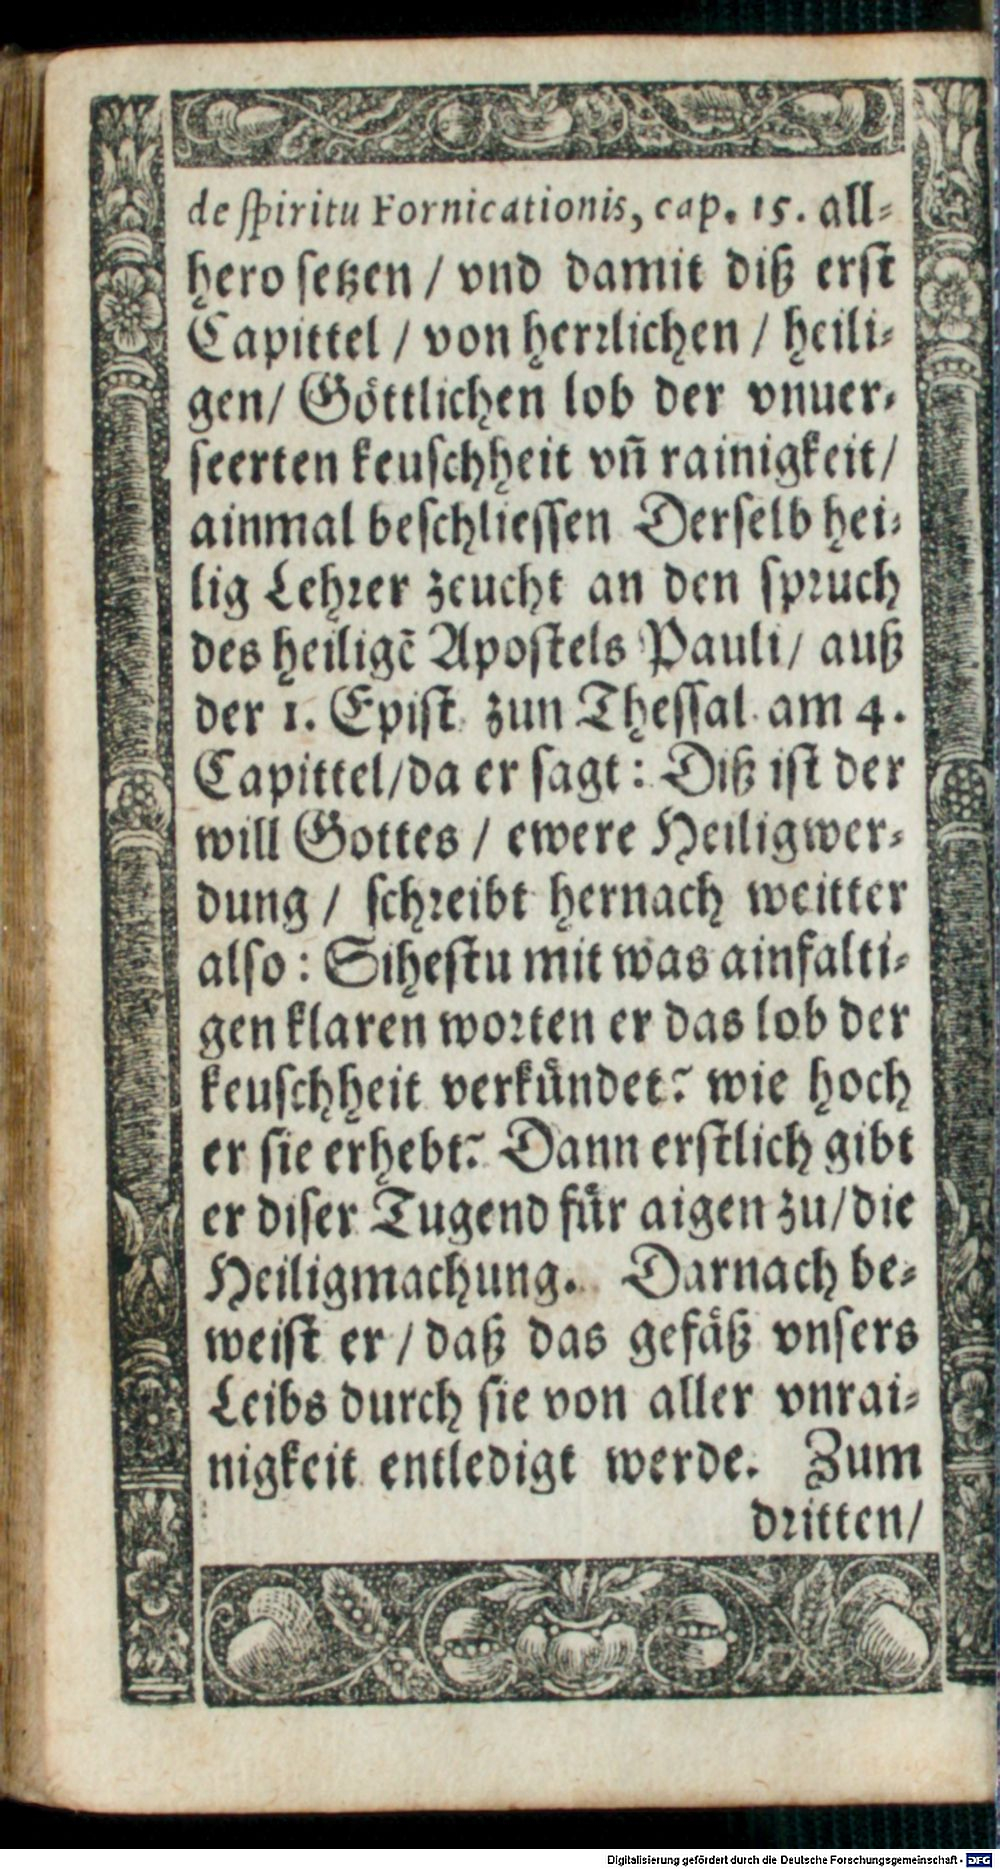 de spiritu Fornicationis, cap. 15. all-
hero setzen / vnd damit diß erst
Capittel / von herrlichen / heili-
gen / Göttlichen lob der vnuer-
seerten keuschheit vn̄ rainigkeit /
ainmal beschliessen Derselb hei-
lig Lehrer zeucht an den spruch
des heiligē Apostels Pauli / auß
der 1. Epist. zun Thessal. am 4.
Capittel / da er sagt: Diß ist der
will Gottes / ewere Heiligwer-
dung / schreibt hernach weitter
also: Sihestu mit was ainfalti-
gen klaren worten er das lob der
keuschheit verkündet? wie hoch
er sie erhebt? Dann erstlich gibt
er diser Tugend für aigen zu / die
Heiligmachung. Darnach be-
weist er / daß das gefäß vnsers
Leibs durch sie von aller vnrai-
nigkeit entledigt werde. Zum
dritten /
Digitalisierung gefördert durch die Deutsche Forschungsgemeinschaft - DFG